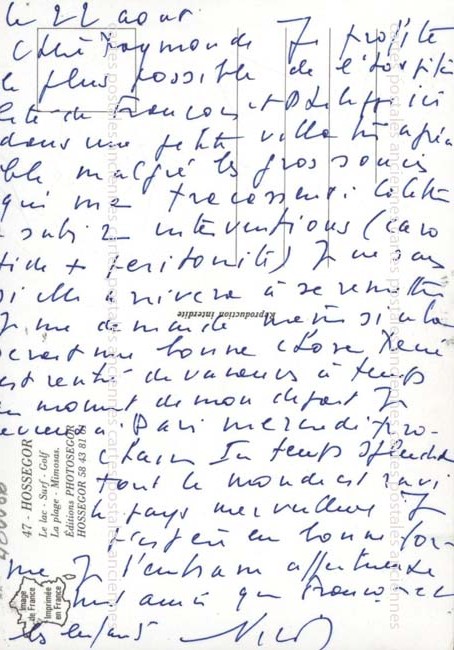 le 22 août
Chère Raymonde Je profite
le plus possible de l'hospita
lité de François et D ici
dans une petite villa très agréa
ble malgré les gros soucis
qui me tracassent. Colette
a subi 2 interventions (caro
tide + péritonite) Je ne sais
si elle arrivera à se remettre
Je me demande même si cela
serait une bonne chose René
est rentré de vacances à temps
au moment de mon départ Je
reviens à Paris mercredi pro-
chain Un temps splendide
tout le monde est ravi
pays merveilleux J
espère en bonne for-
me Je t'embrasse affectueuse
ment ainsi que François et
les enfants
Réproduction interdite
47 - HOSSEGOR
Le lac - Surf - Golf
La plage - Mimosas.
Éditions PHOTOSEGOR
HOSSEGOR 58 43 81
Image
de France
Imprimée
en France
cartes postales anciennes